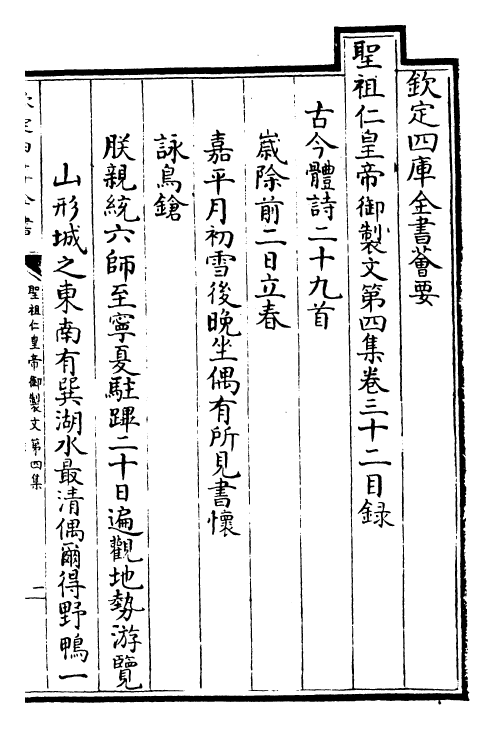 欽定四庫全書薈要
聖祖仁皇帝御製文第四集卷三十二目録
古今體詩二十九首
嵗除前二日立春
嘉平月初雪後晩坐偶有所見書懷
詠鳥鎗
朕親統六師至寧夏駐蹕二十日遍觀地勢游覽
山形城之東南有巽湖水最清偶爾得野鴨一
欽定四庫全書
聖祖仁皇帝御製文第四集
二